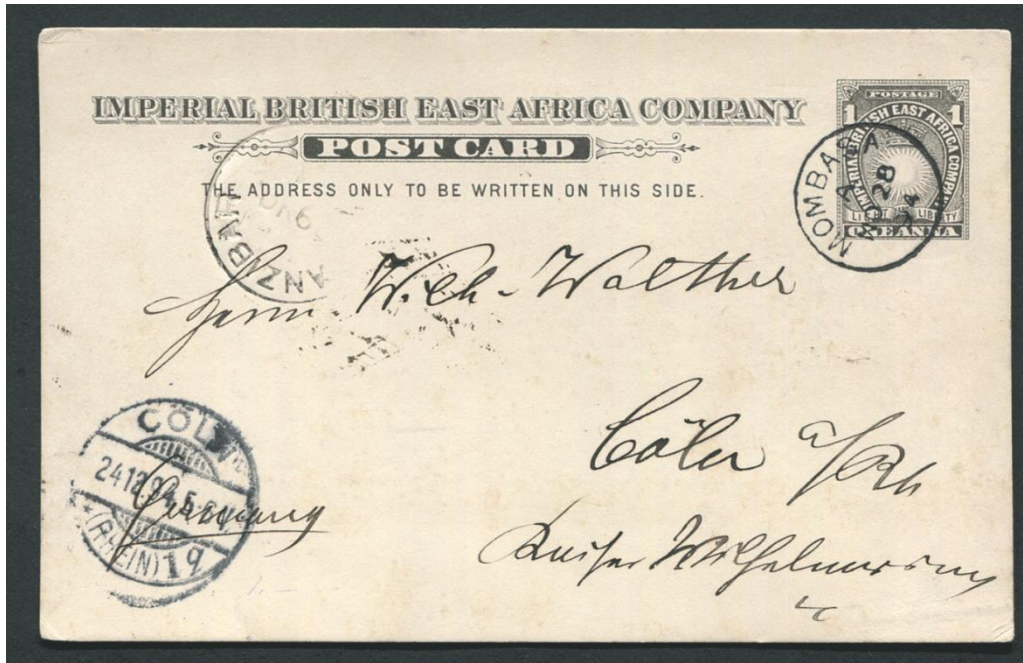 IMPERIAL BRITISH EAST AFRICA COMPANY
POST CARD
THE ADDRESS ONLY TO BE WRITTEN ON THIS SIDE.
POSTAGE
1 1
IMPERIAL BRITISH EAST AFRICA COMPANY
LIGHT AND LIBERTY
ONE ANNA
MOMBASA
A
NO 28
94
ANZIBAR
Herrn Wilh. Walther
Cöln a/Rh
Kaiser Wilhelmring
Germany
CÖLN
24.12.94.5-6N.
(RHEIN) 19